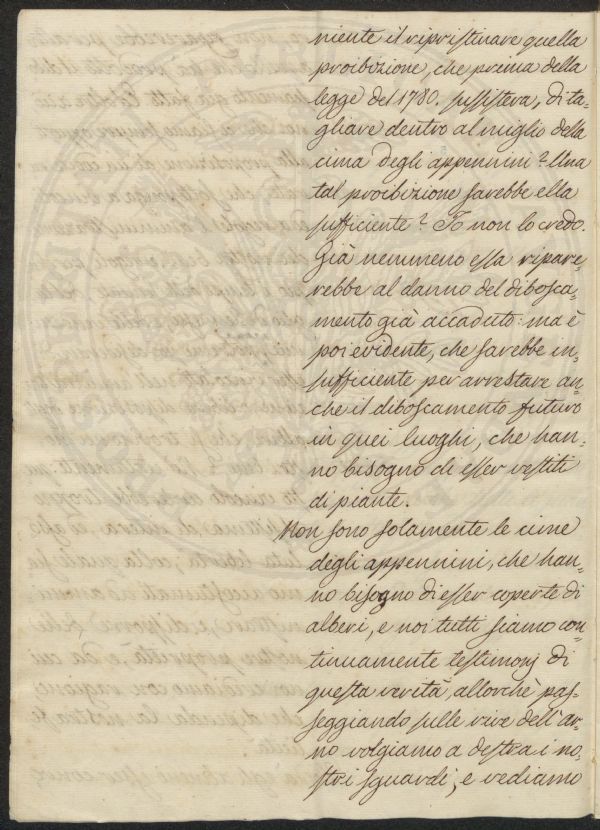 niente il ripristinare quella
proibizione, che prima della
legge del 1780. sussisteva, di ta=
gliare dentro al miglio della
cima degli appennini? Una
tal proibizione sarebbe ella
sufficiente? Io non lo credo.
Già nemmeno essa ripare=
rebbe al danno del disbosca=
mento già accaduto: ma è
poi evidente, che sarebbe in=
sufficiente per arrestare an=
che il diboscamento futuro
in quei luoghi, che han=
no bisogno di esser vestiti
di piante.
Non sono solamente le cime
degli appennini, che han=
no bisogno di esser coperte di
alberi, e noi tutti siamo con=
tinuamente testimonj di
questa verità, allorchè pas=
seggiando sulle rive dell'ar=
no volgiamo a destra i no=
stri sguardi, e vediamo